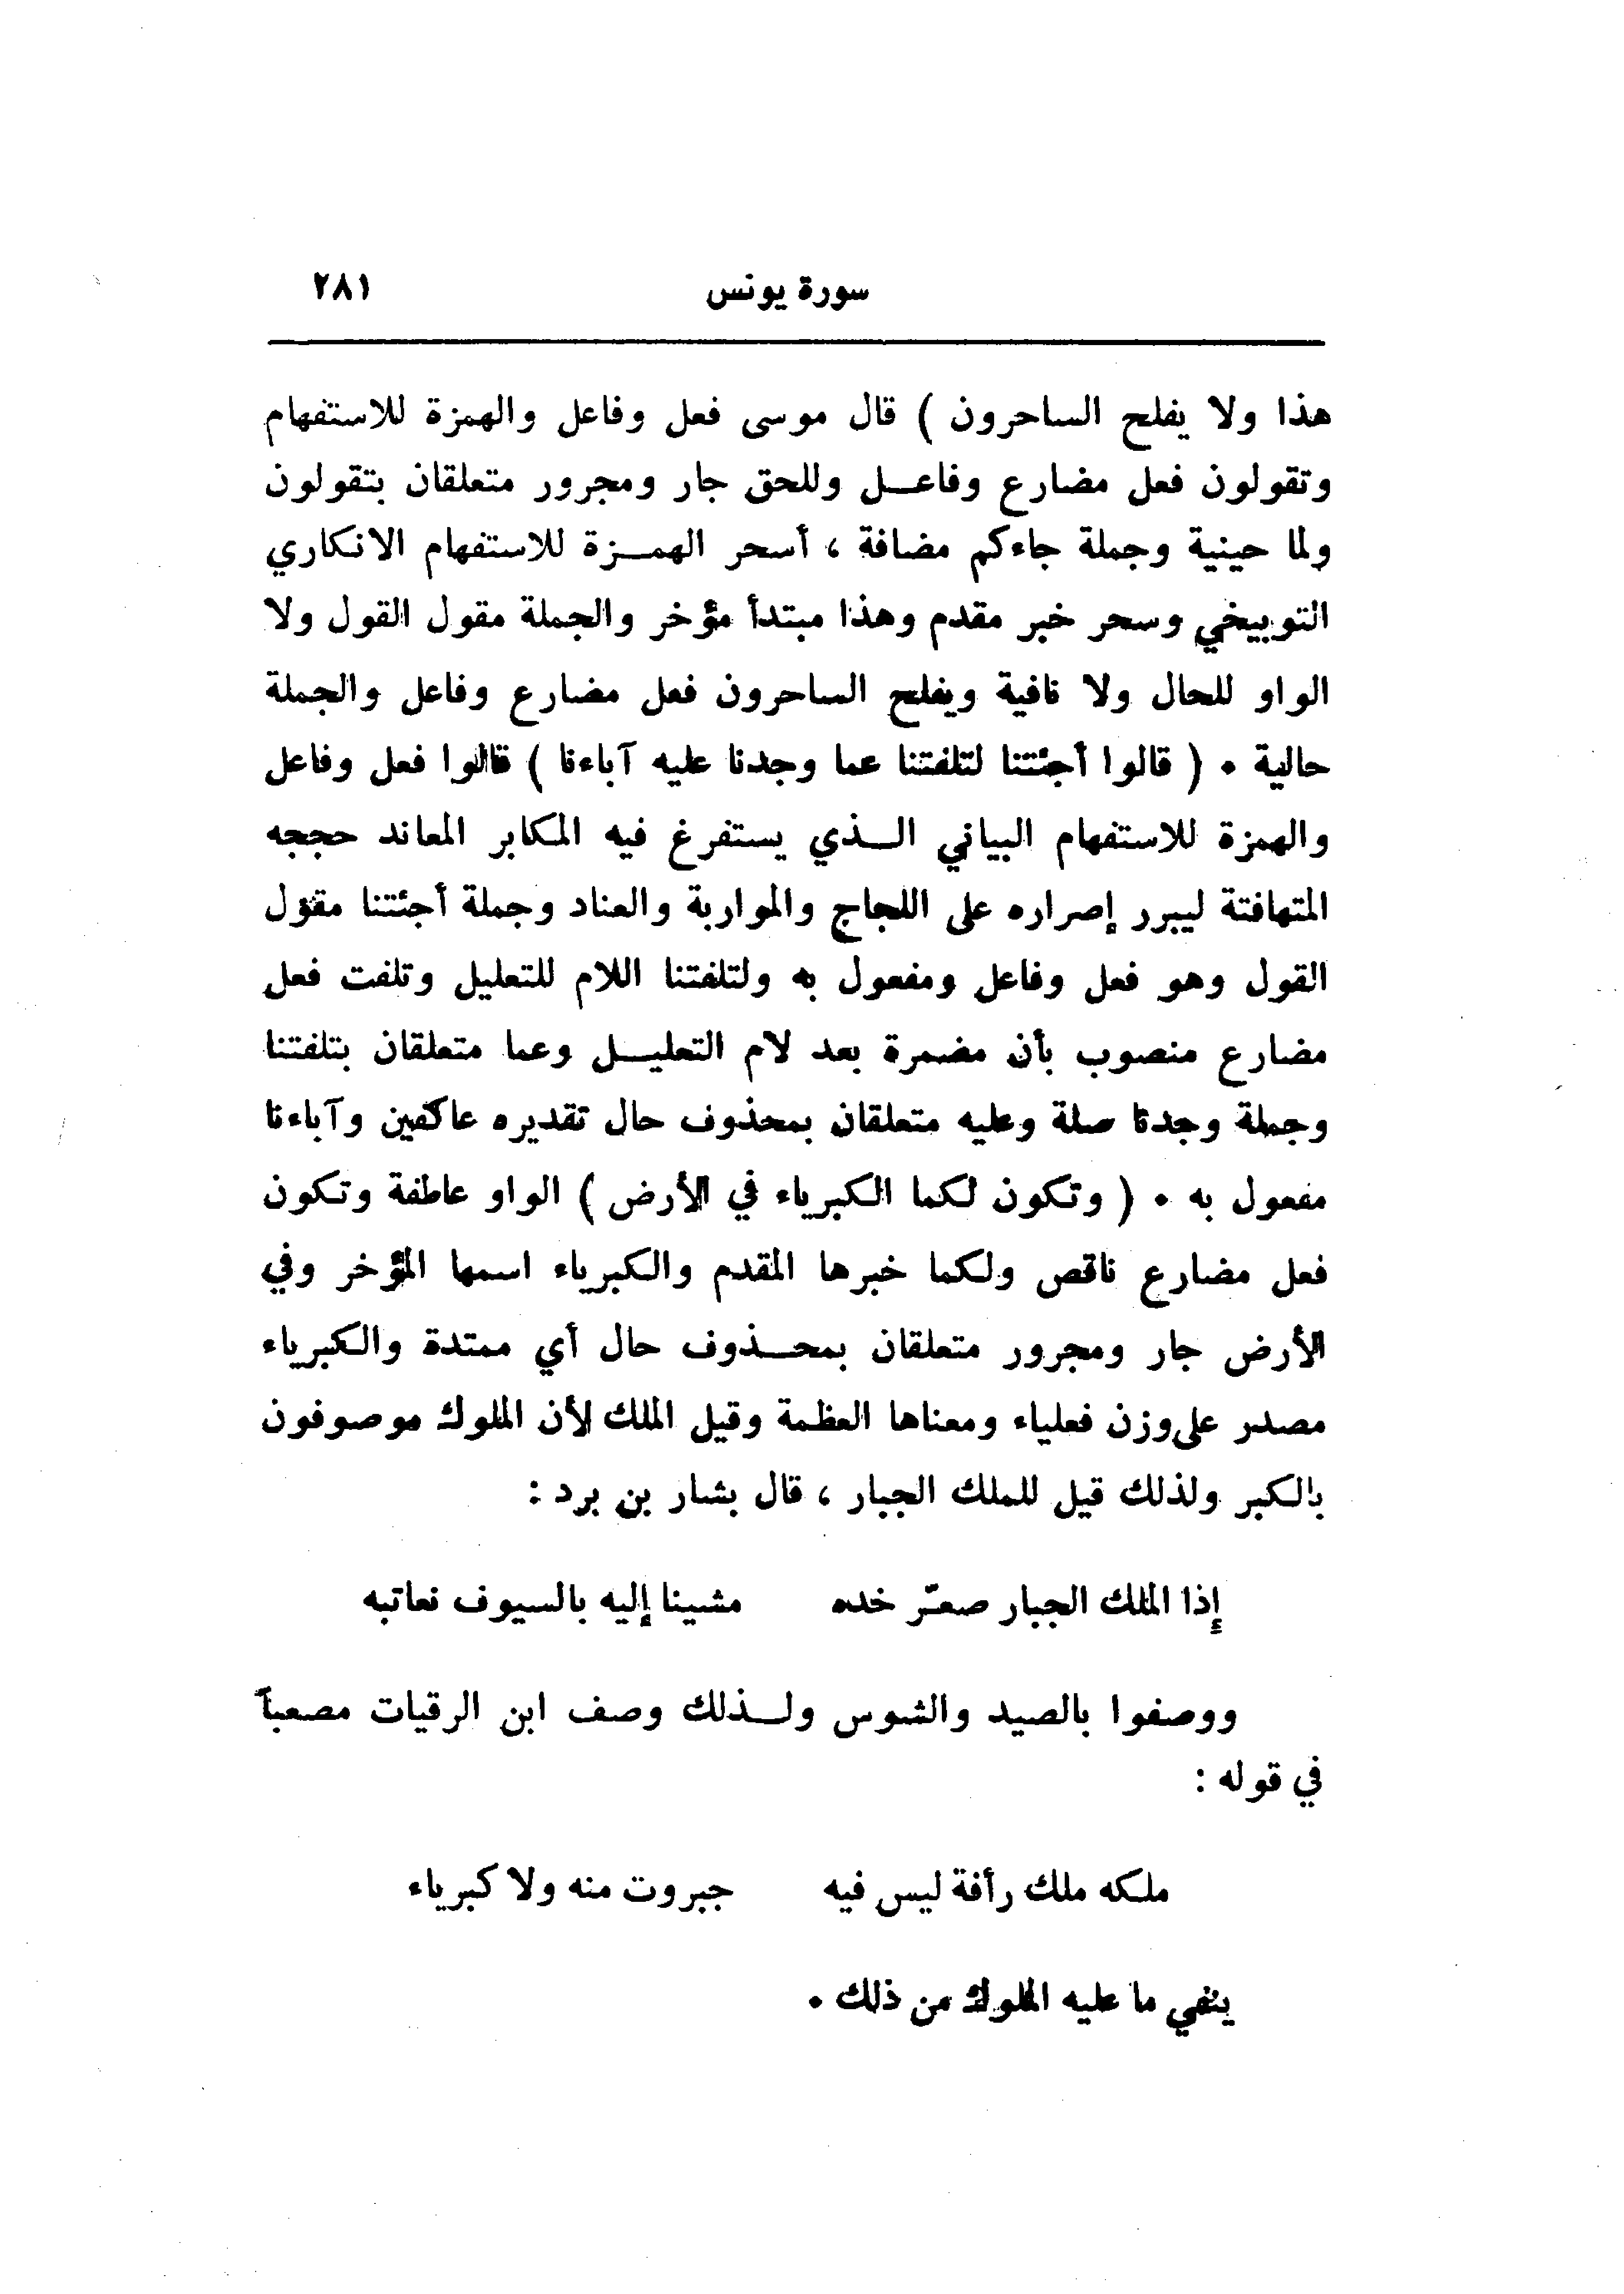 سورة يونس ٢٨١
هذا ولا يفلح الساحرون ) قال موسى فعل وفاعل والهمزة للاستفهام
وتقولون فعل مضارع وفاعل وللحق جار ومجرور متعلقان بتقولون
ولما حينية وجملة جاءكم مضافة ، أسحر الهمزة للاستفهام الانكاري
التوبيخي وسحر خبر مقدم وهذا مبتدأ مؤخر والجملة مقول القول ولا
الواو للحال ولا نافية ويفلح الساحرون فعل مضارع وفاعل والجملة
حالية . ( قالوا أجئتنا لتلفتنا عما وجدنا عليه آباءنا ) قالوا فعل وفاعل
والهمزة للاستفهام البياني الذي يستفرغ فيه المكابر المعاند حججه
المتهافتة ليبرر إصراره على اللجاج والمواربة والعناد وجملة أجئتنا مقول
القول وهو فعل وفاعل ومفعول به ولتلفتنا اللام للتعليل وتلفت فعل
مضارع منصوب بأن مضمرة بعد لام التعليل وعما متعلقان بتلفتنا
وجملة وجدنا صلة وعليه متعلقان بمحذوف حال تقديره عاكفين وآباءنا
مفعول به . ( وتكون لكما الكبرياء في الأرض ) الواو عاطفة وتكون
فعل مضارع ناقص ولكما خبرها المقدم والكبرياء اسمها المؤخر وفي
الأرض جار ومجرور متعلقان بمحذوف حال أي ممتدة والكبرياء
مصدر على وزن فعلياء ومعناها العظمة وقيل الملك لأن الملوك موصوفون
بالكبر ولذلك قيل للملك الجبار ، قال بشار بن برد :
إذا الملك الجبار صعّر خده مشينا إليه بالسيوف نعاتبه
ووصفوا بالصيد والشوس ولذلك وصف ابن الرقيات مصعباً
في قوله :
ملكه ملك رأفة ليس فيه جبروت منه ولا كبرياء
ينفي ما عليه الملوك من ذلك .